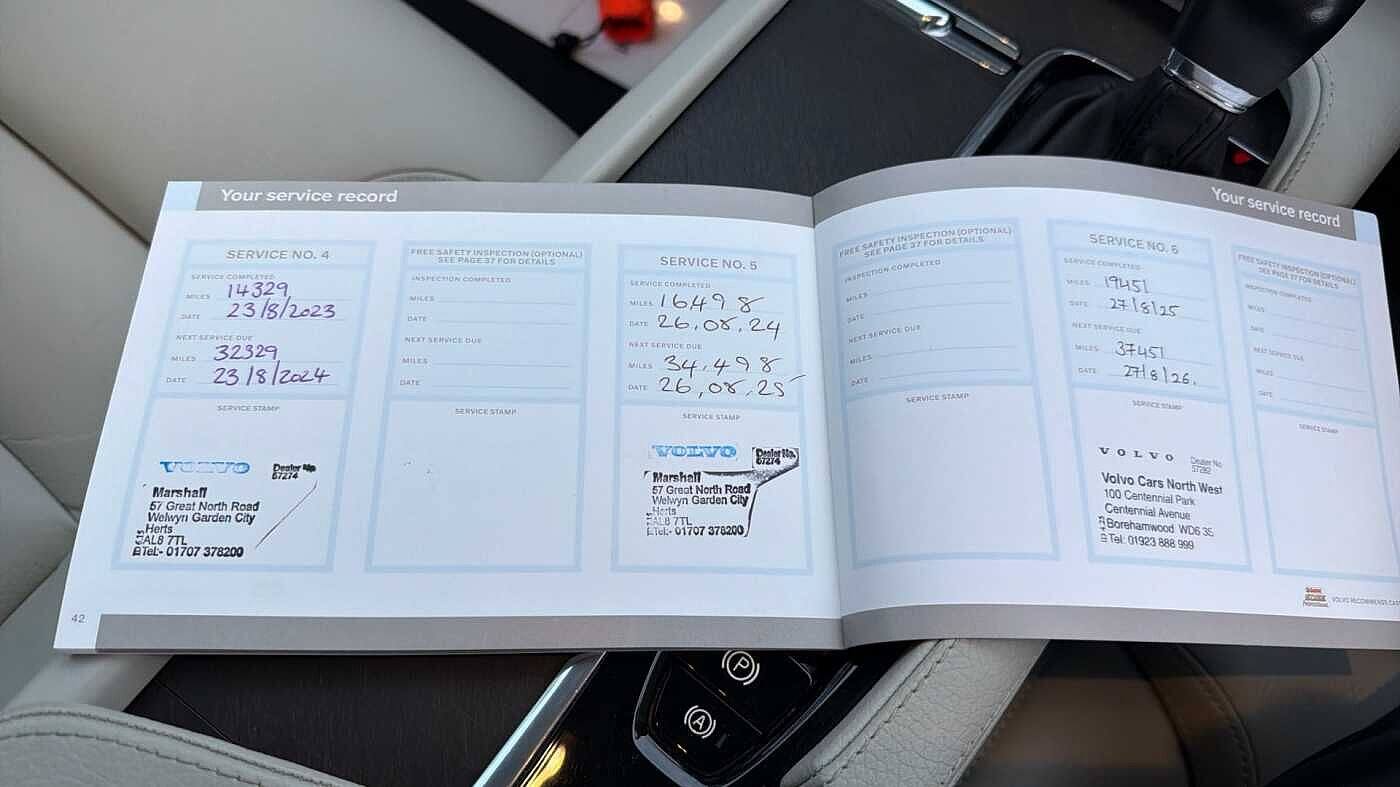 Your service record
SERVICE NO. 4
SERVICE COMPLETED
MILES 14329
DATE 23/8/2023
NEXT SERVICE DUE
MILES 32329
DATE 23/8/2024
SERVICE STAMP
VOLVO Dealer No.
57274
Marshall
57 Great North Road
Welwyn Garden City
Herts
AL8 7TL
Tel:- 01707 378200
FREE SAFETY INSPECTION (OPTIONAL)
SEE PAGE 37 FOR DETAILS
INSPECTION COMPLETED
MILES
DATE
NEXT SERVICE DUE
MILES
DATE
SERVICE STAMP
SERVICE NO. 5
SERVICE COMPLETED
MILES 16498
DATE 26.08.24
NEXT SERVICE DUE
MILES 34.498
DATE 26.08.25
SERVICE STAMP
VOLVO Dealer No.
57274
Marshall
57 Great North Road
Welwyn Garden City
Herts
AL8 7TL
Tel:- 01707 378200
42
Your service record
FREE SAFETY INSPECTION (OPTIONAL)
SEE PAGE 37 FOR DETAILS
INSPECTION COMPLETED
MILES
DATE
NEXT SERVICE DUE
MILES
DATE
SERVICE STAMP
SERVICE NO. 6
SERVICE COMPLETED
MILES 19451
DATE 27/8/25
NEXT SERVICE DUE
MILES 37451
DATE 27/8/26.
SERVICE STAMP
VOLVO Dealer No
57292
Volvo Cars North West
100 Centennial Park
Centennial Avenue
Borehamwood WD6 3S
Tel: 01923 888 999
FREE SAFETY INSPECTION (OPTIONAL)
SEE PAGE 37 FOR DETAILS
INSPECTION COMPLETED
MILES
DATE
NEXT SERVICE DUE
MILES
DATE
SERVICE STAMP
VOLVO RECOMMENDS
P
A